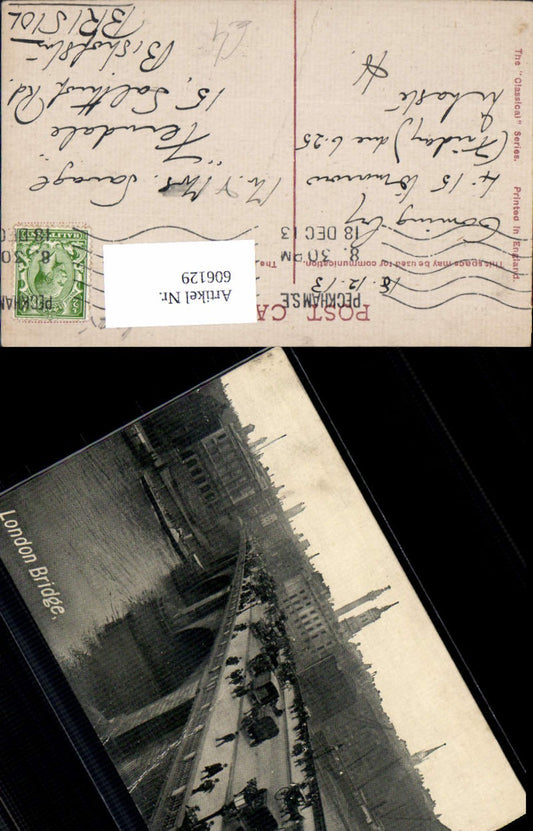 POST CA
The "Classical" Series. Printed in England.
This space may be used for communication.
The a
PECKHAM S.E
8.30 PM
18 DEC 13
PECKHAM
8.30
18 DEC
18.12.13
Coming by
4.15 tomorrow
(Friday) due 6.25
H.
Mr & Mrs. Savage
"Ferndale"
15,
Rd.
Bishopston
BRISTOL
Artikel Nr.
606129
London Bridge.